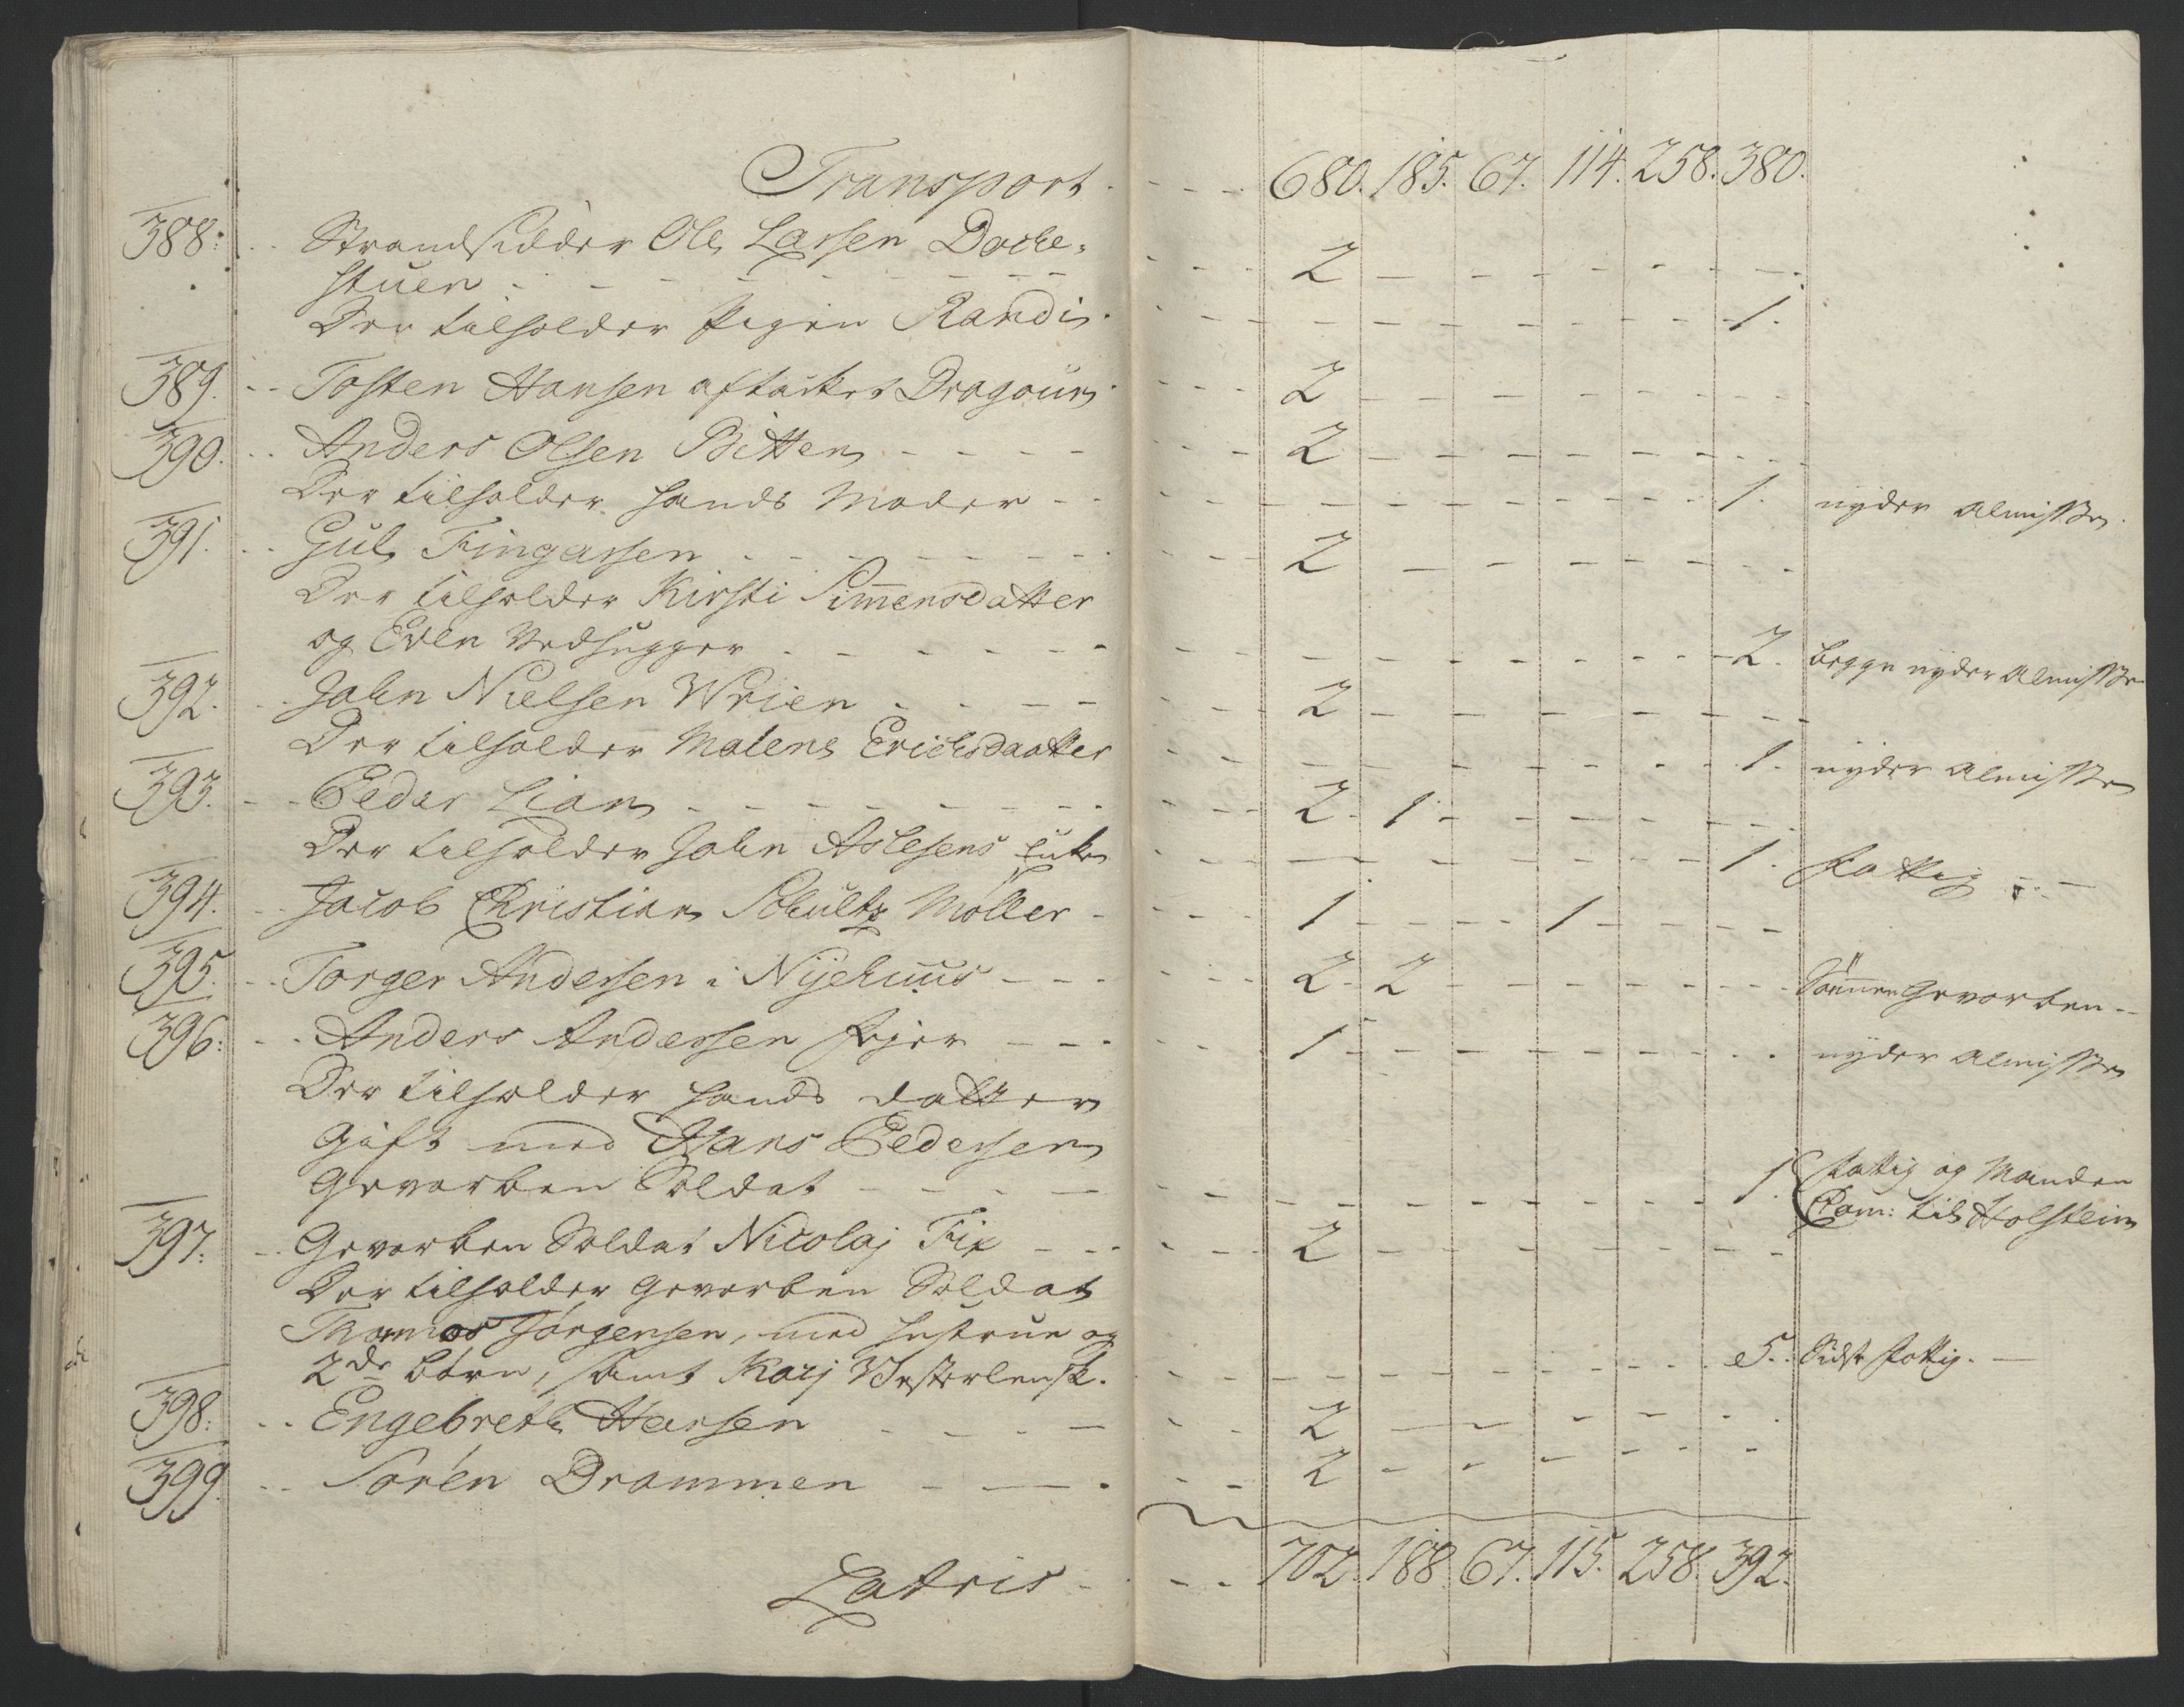 Transport - - - - 680. 185. 67. 114. 258. 380.
388: Strandsidder Ole Larsen Docke-
stuen - - - 2
Der tilholder Pigen Randi - - - 1.
389. Tosten Hansen aftacket Dragoun - - - 2
390. Anders Olsen Bitten - - - 2
Der tilholder hands Moder - - - 1. nyder Almisse.
391. Gul Fingarsen - - - 2
Der tilholder Kirsti Simensdatter
og Even Vedhugger - - - 2. begge nyder Almisse
392. John Nielsen Wrien - - - 2
Der tilholder Malene Erichsdaatter - - - 1. nyder Almisse
393. Peder Lian - - - 2. 1.
Der tilholder John Aslesens Enke - - - 1. fattig
394. Jacob Christian Schultz Møller - - - 1 - - - 1
395. Torger Andersen i Nyehuus - - - 2. 2 - - - Sønnen Gevorben
396: Anders Andersen Fejer - - - 1 - - - nyder Almisse
Der tilholder hands datter
Gift med Hans Pedersen
Gevorben Soldat - - - 1. fattig og Manden
Com: til Holstein
397: Gevorben Soldat Nicolaj Fix - - - 2
Der tilholder Gevorben Soldat
Thomas Jørgensen, med hustrue og
2de børn, samt Karj Vesterlensk. - - - 5. Sidste fattig.
398: Engebreth Hansen - - - 2
399. Sørén Drammen - - - 2
Latris - - - 702. 188. 67. 115. 258. 392.